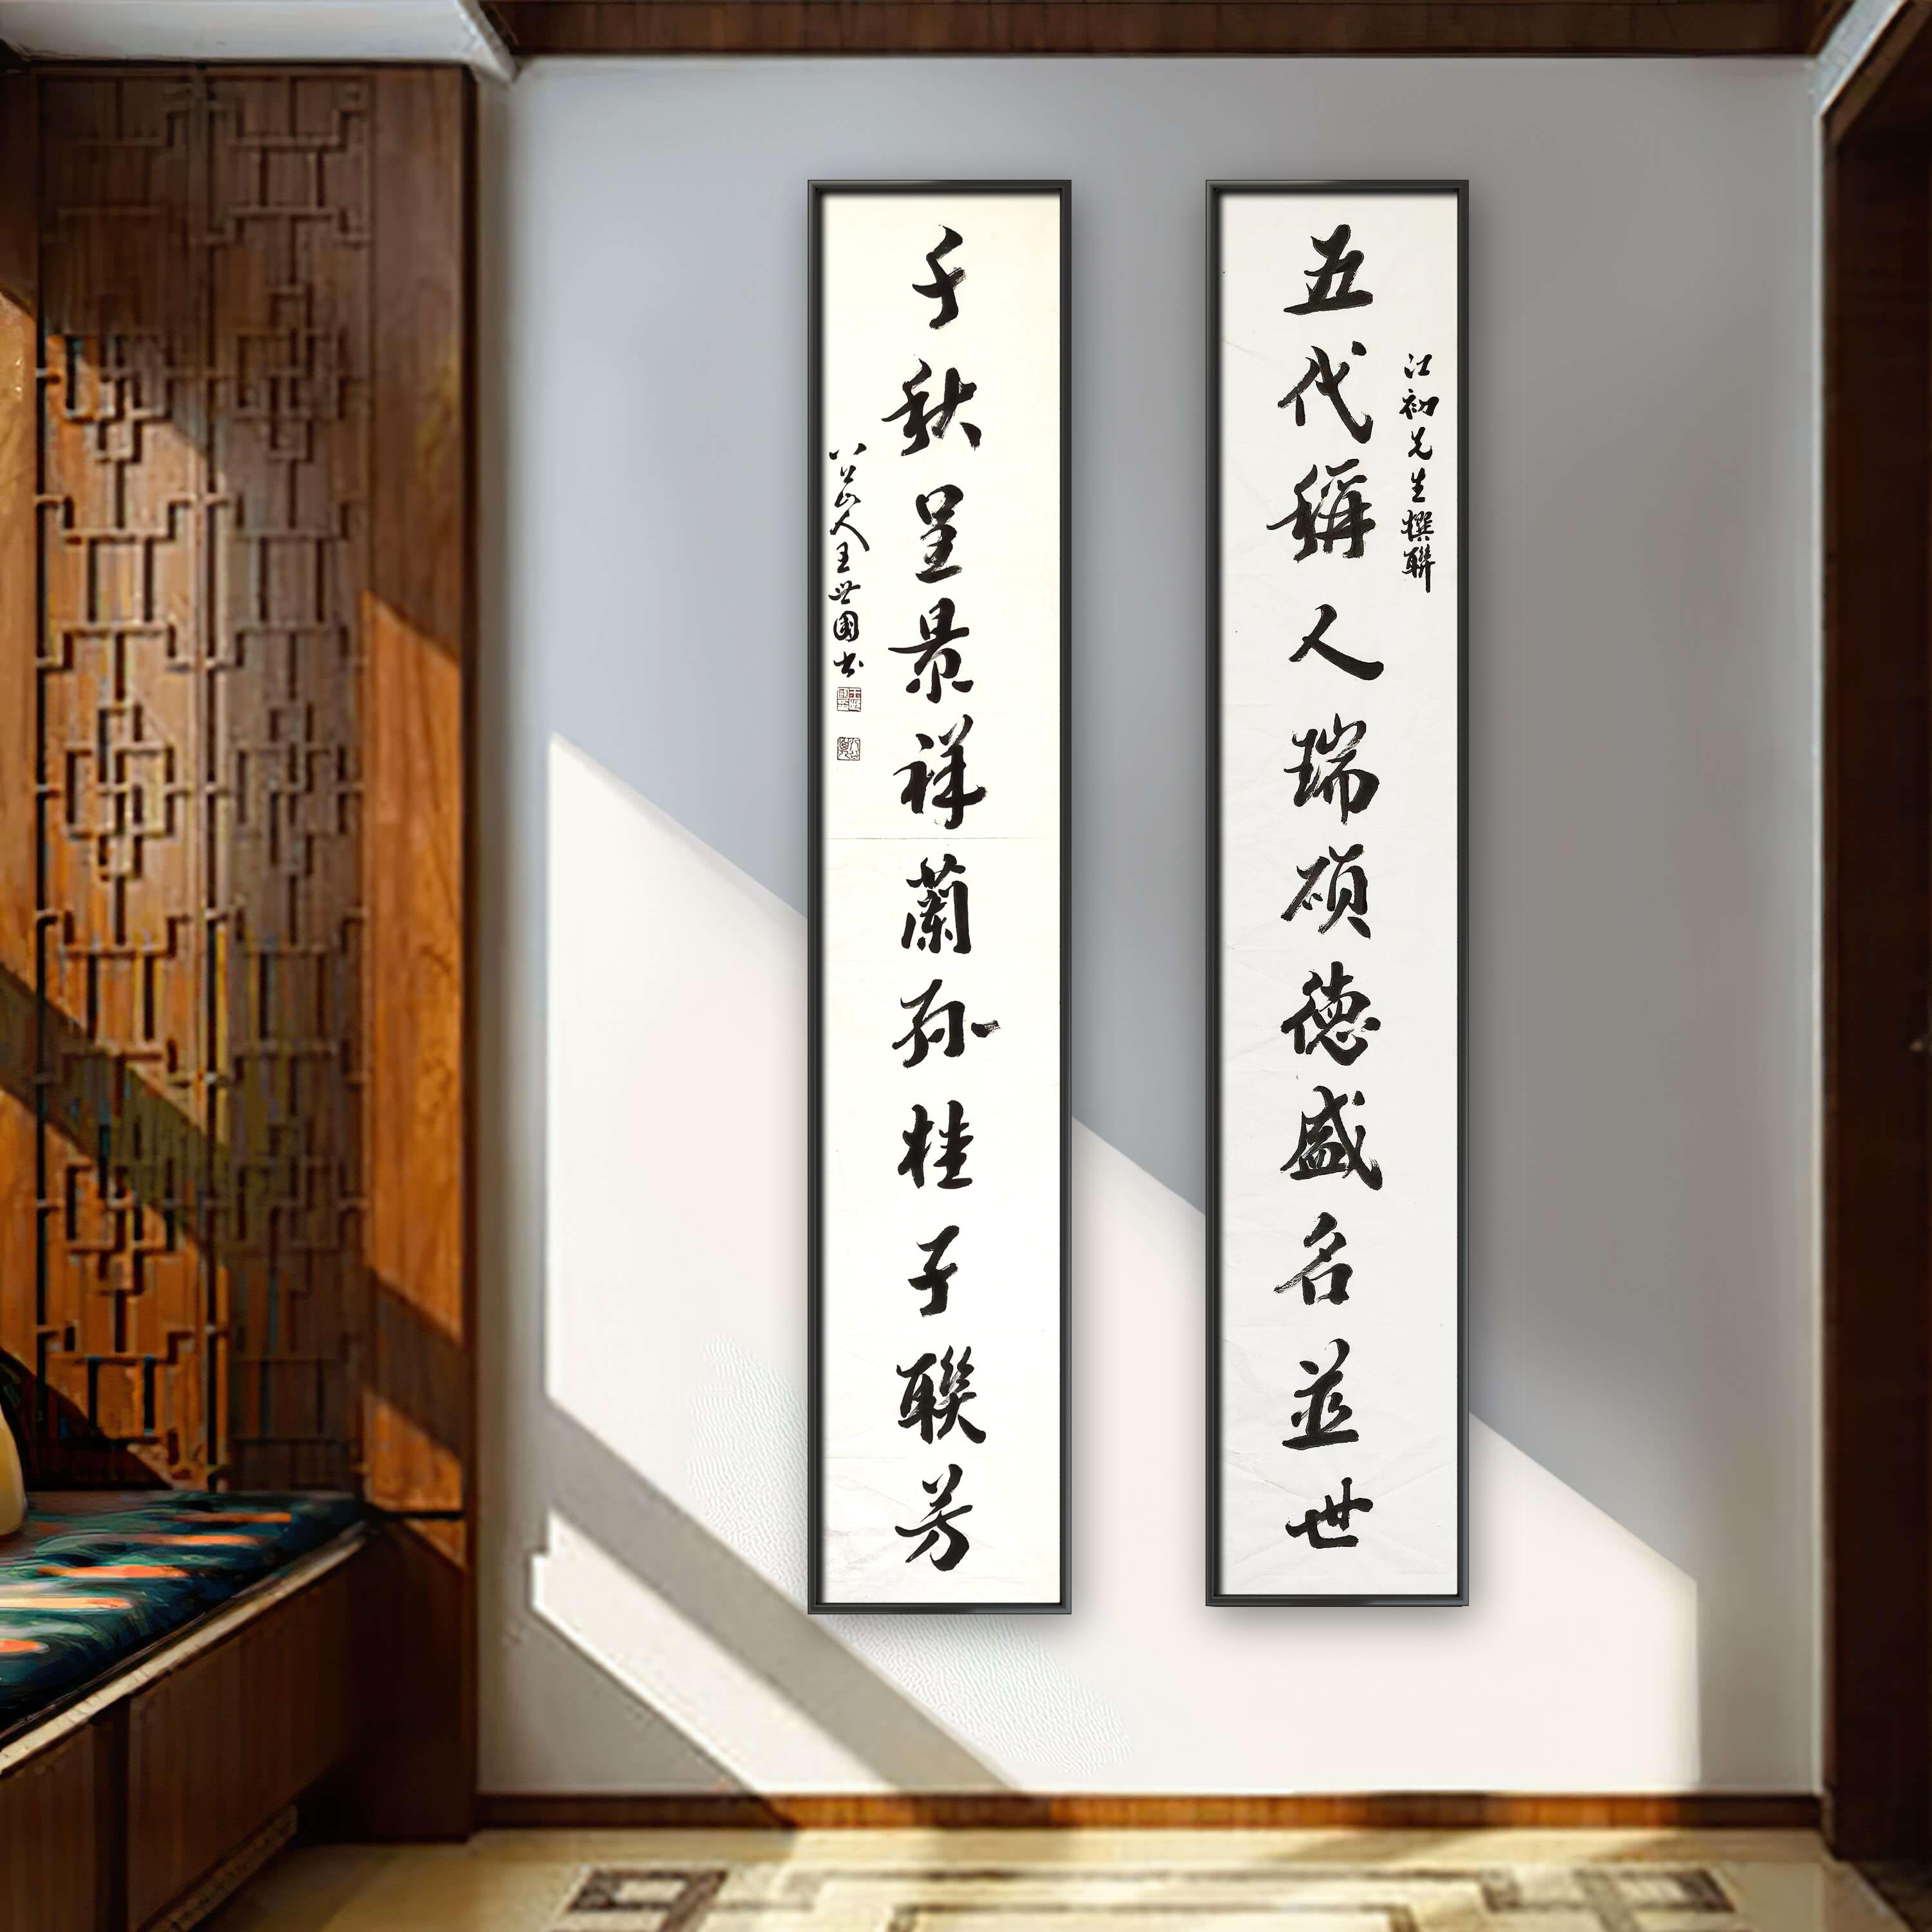 五代稱人瑞碩德盛名並世
江初先生撰聯
千秋呈景祥蘭孫桂子聯芳
八公山人王世國书